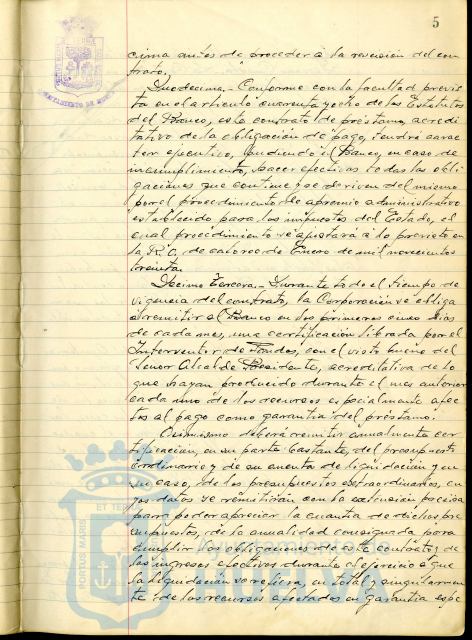 5
cima antes de proceder á la rescisión del con-
trato.
Duodecima.- Conforme con la facultad previs-
ta en el articulo cuarenta y ocho de los Estatutos
del Banco, este contrato de préstamo, acredi-
tativo de la obligación de pago, tendrá carac-
ter ejecutivo, pudiendo el Banco, en caso de
incumplimiento, hacer efectivas todas las obli-
gaciones que contiene y se deriven del mismo
por el procedimiento de apremio administrativo
establecido para los impuestos del Estado, el
cual procedimiento se ajustará á lo previsto en
la R.O. de catorce de Enero de mil novecientos
treinta.
Décimo Tercera.- Durante todo el tiempo de
vigencia del contrato, la Corporación se obliga
a remitir al Banco en los primeros cinco dias
de cada mes, una certificación librada por el
Interventor de Fondos, con el visto bueno del
Señor Alcalde Presidente, acreditativa de lo
que hayan producido durante el mes anterior
cada uno de los recursos especialmente afec-
tos al pago como garantia del préstamo.
Asimismo deberá remitir anualmente cer-
tificación, en su parte bastante, del presupuesto
ordinario y de su cuenta de liquidación y en
su caso, de los presupuestos extraordinarios, cu-
yos datos se remitirán con la extensión precisa
para poder apreciar la cuantia de dichos pre-
supuestos, de la anualidad consignada para
cumplir las obligaciones de este contrato y de
los ingresos efectivos durante el ejercicio a que
la liquidación se refiera, en total y singularmen-
te de los recursos afectados en garantia espe
PORTUS MARIS ET TERRAE
Ayuntamiento de